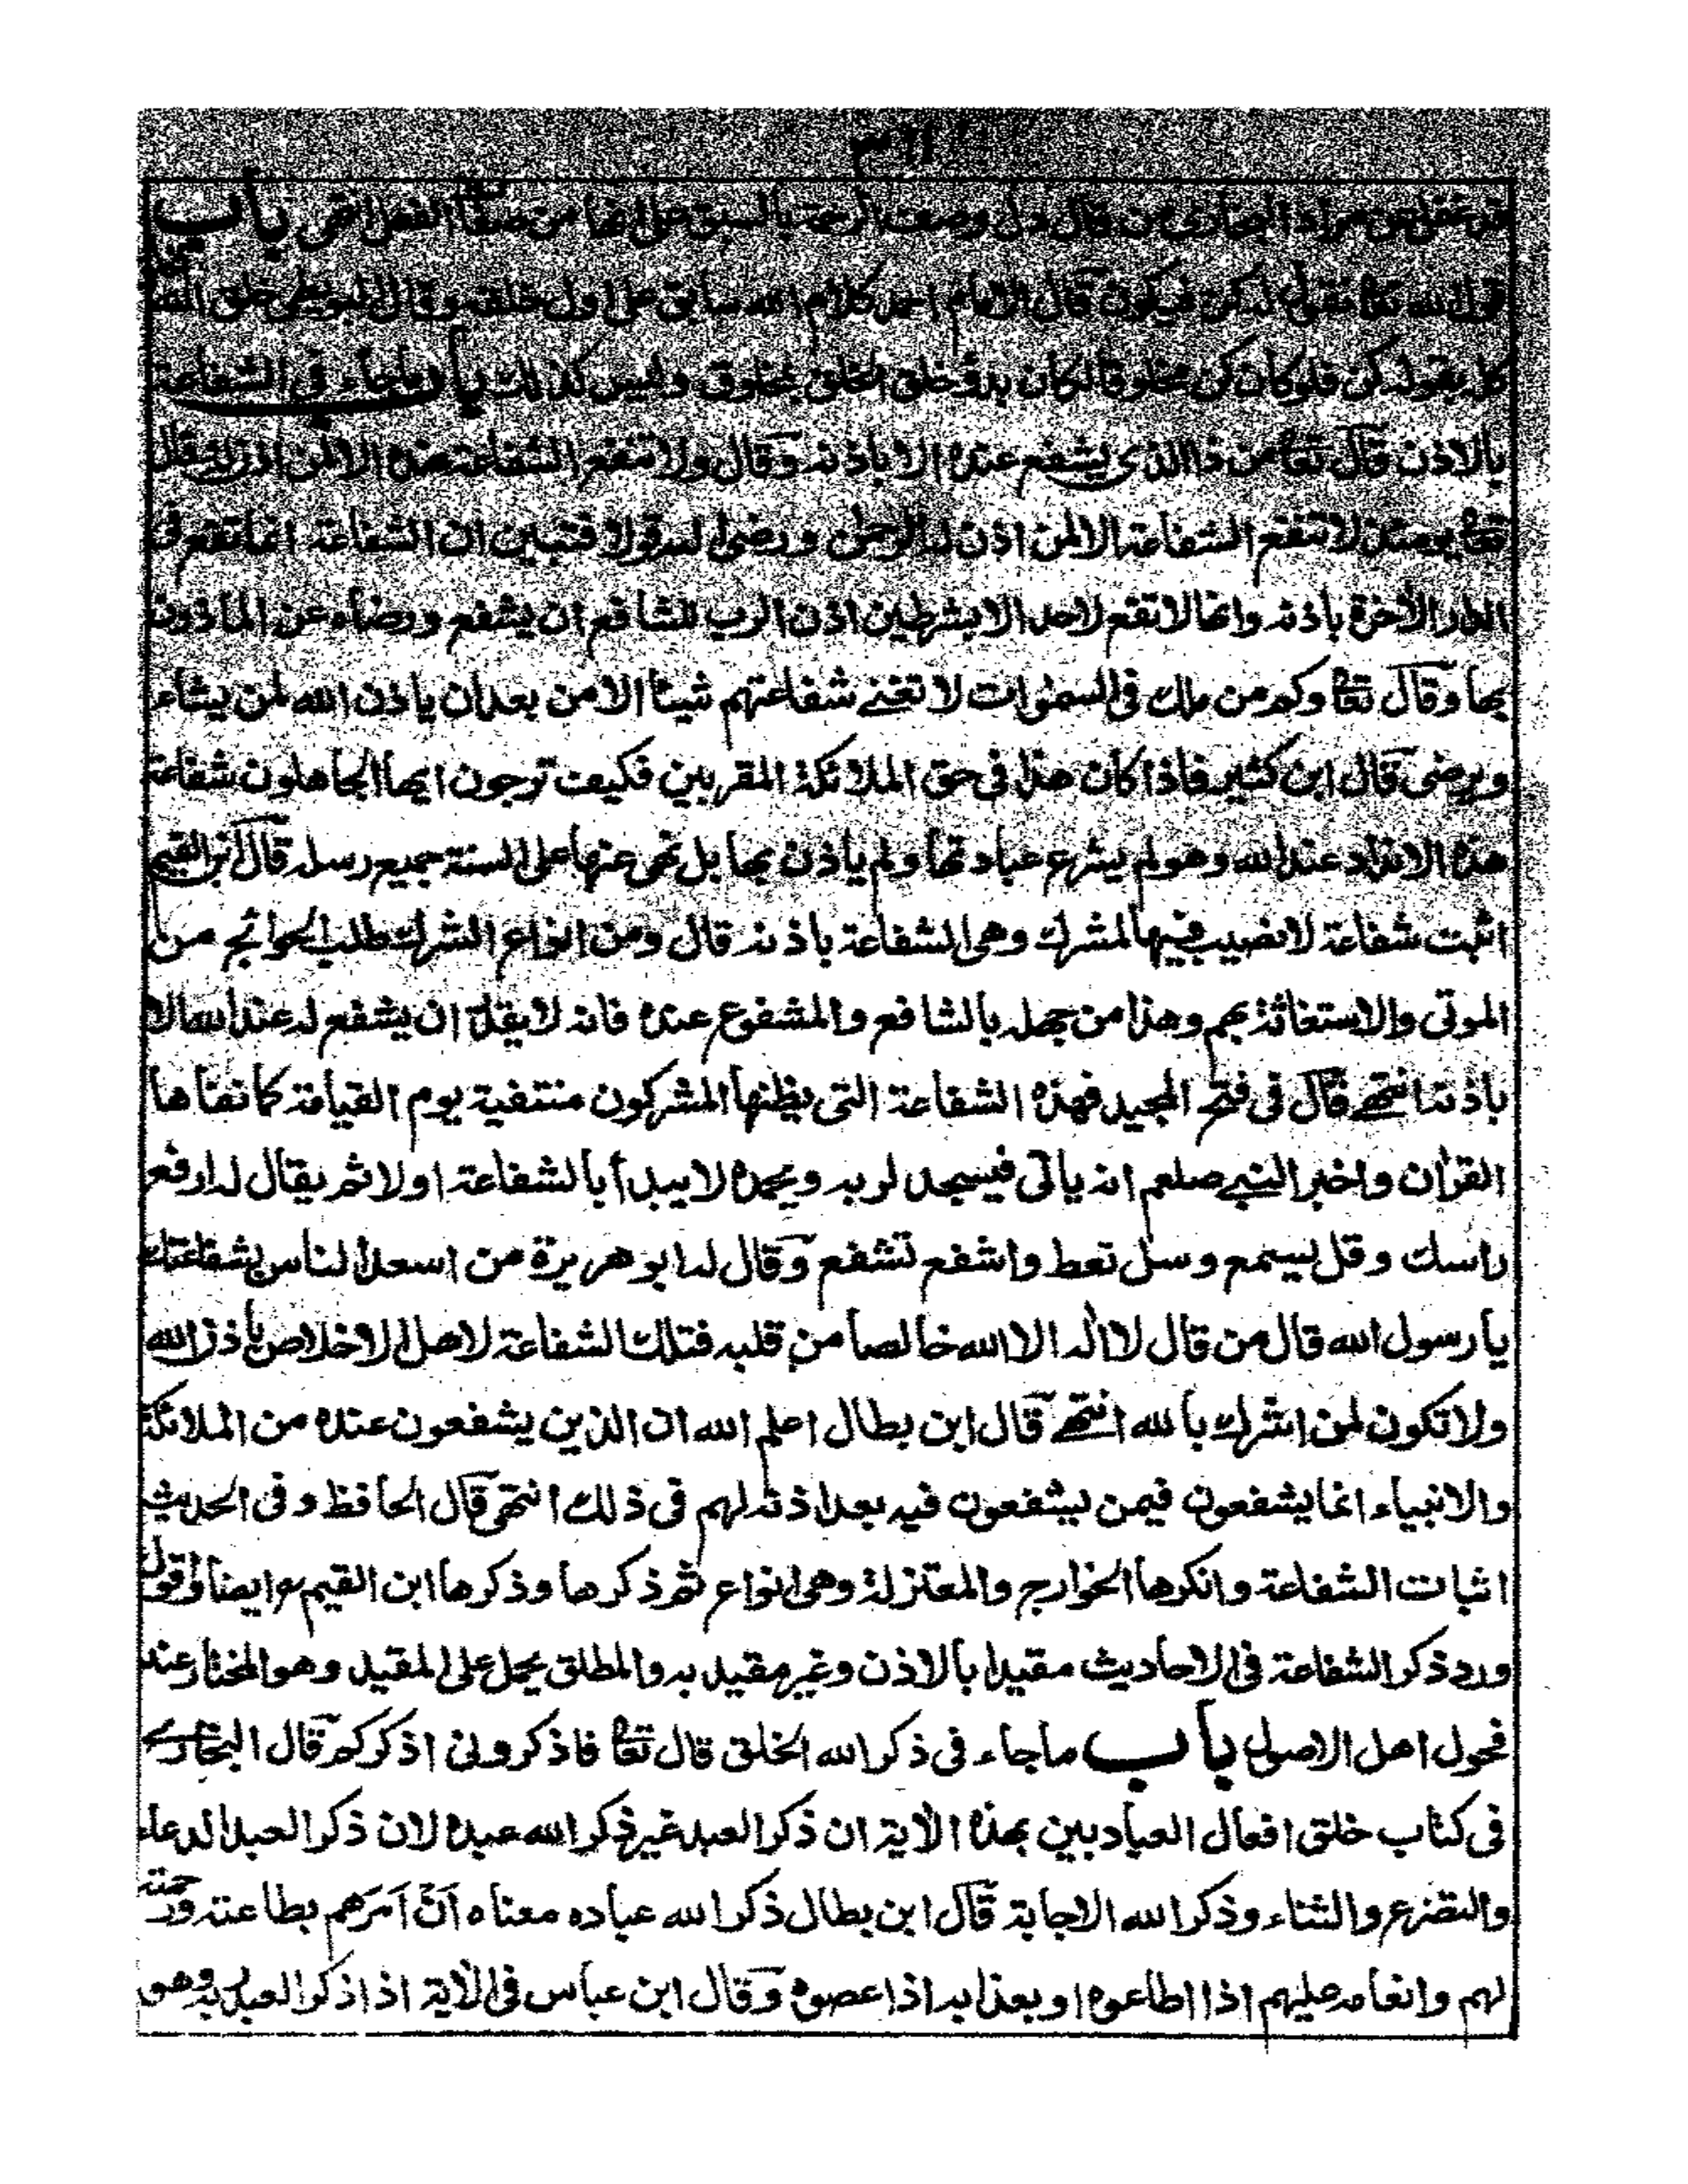 مراد البخاري من قال دل وصف الرحمة بالسبق على انها من صفات الفعل انتهى باب
قول الله تعالى نقول له كن فيكون قال الامام احمد كلام الله سابق على اول خلقه وقال البويطي خلق الله
كل بقوله كن فلو كان كن مخلوقا لكان بدؤ خلق الخلق بمخلوق وليس كذلك باب ما جاء في الشفاعة
بالاذن قال تعا من ذا الذي يشفع عنده الا باذنه وقال ولا تنفع الشفاعة عنده الا لمن اذن له وقال
تعا يومئذ لا تنفع الشفاعة الا لمن اذن له الرحمن ورضى له قولا فتبين ان الشفاعة انما تقع في
الدار الاخرة باذنه وانها لا تقع لاحد الا بشرطين اذن الرب للشافع ان يشفع ورضاه عن الماذون
بها وقال تعا وكم من ملك في السمٰوات لا تغنے شفاعتهم شيئا الا من بعد ان ياذن الله لمن يشاء
ويرضى قال ابن كثير فاذا كان هذا في حق الملائكة المقربين فكيف ترجون ايها الجاهلون شفاعة
هذه الانداد عند الله وهو لم يشرع عبادتها ولم ياذن بها بل نهى عنها على السنة جميع رسله قال ابن القيم
اثبت شفاعة لا نصيب فيها لمشرك وهى الشفاعة باذنه قال ومن انواع الشرك طلب الحوائج من
الموتى والاستغاثة بهم وهذا من جهله بالشافع والمشفوع عنده فانه لا يقدر ان يشفع له عند الله الا
باذنه انتهے قال في فتح المجيد فهذه الشفاعة التى يظنها المشركون منتفية يوم القيامة كما نفاها
القراٰن واخبر النبے صلعم انه ياتى فيسجد لربه ويحمده لا يبدأ بالشفاعة اولا ثم يقال له ارفع
راسك وقل يسمع وسل تعط واشفع تشفع وقال له ابو هريرة من اسعد الناس بشفاعتك
يا رسول الله قال من قال لا اله الا الله خالصا من قلبه فتلك الشفاعة لاهل الاخلاص باذن الله
ولا تكون لمن اشرك بالله انتهے قال ابن بطال اعلم الله ان الذين يشفعون عنده من الملائكة
والانبياء انما يشفعون فيمن يشفعون فيه بعد اذنه لهم فى ذلك انتهى قال الحافظ وفى الحديث
اثبات الشفاعة وانكرها الخوارج والمعتزلة وهى انواع ثم ذكرها وذكرها ابن القيم ايضا واقول
ورد ذكر الشفاعة فى الاحاديث مقيدا بالاذن وغير مقيد به والمطلق يحمل على المقيد وهو المختار عند
فحول اهل الاصول باب ما جاء فى ذكر الله الخلق قال تعا فاذكرونى اذكركم قال البخارے
فى كتاب خلق افعال العباد بين بهذه الاٰية ان ذكر العبد غير ذكر الله عبده لان ذكر العبد الدعاء
والتضرع والثناء وذكر الله الاجابة قال ابن بطال ذكر الله عباده معناه ان امرهم بطاعته ورحمته
لهم وانعامه عليهم اذا اطاعوه او بعذابه اذا عصوه وقال ابن عباس فى الاٰية اذا ذكر العبد ربه وهو